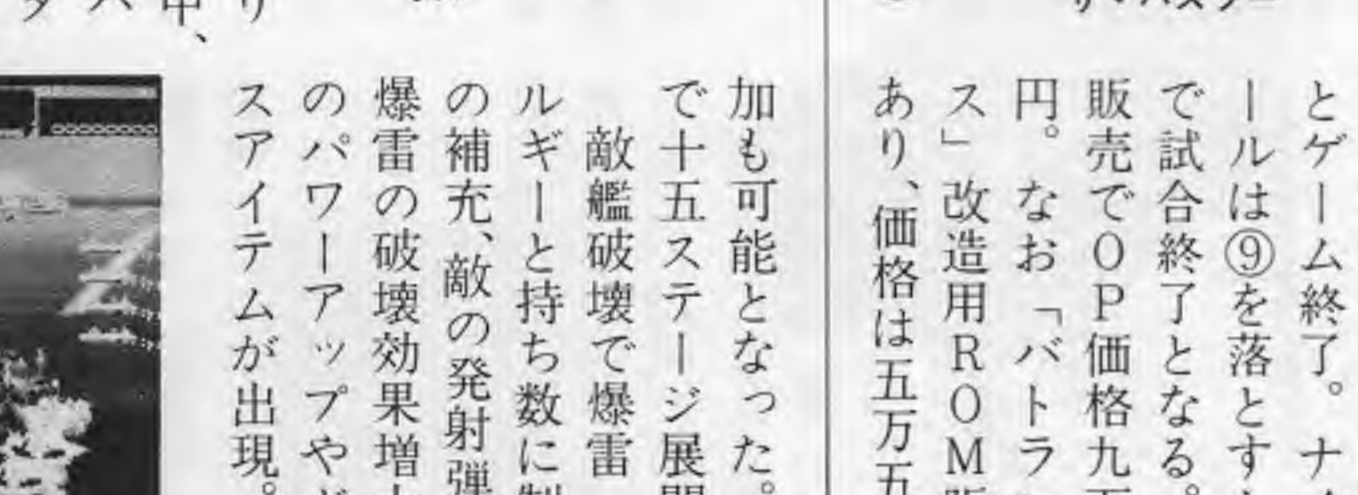 とゲーム終了。ナ
ールは⑨を落とす
で試合終了となる。
販売でOP価格九
円。なお「バトラ
ス」改造用ROM販
あり、価格は五万五
加も可能となった。
で十五ステージ展開
敵艦破壊で爆雷
ルギーと持ち数に制
の補充、敵の発射弾
爆雷の破壊効果増
のパワーアップや
スアイテムが出現。
り
中、